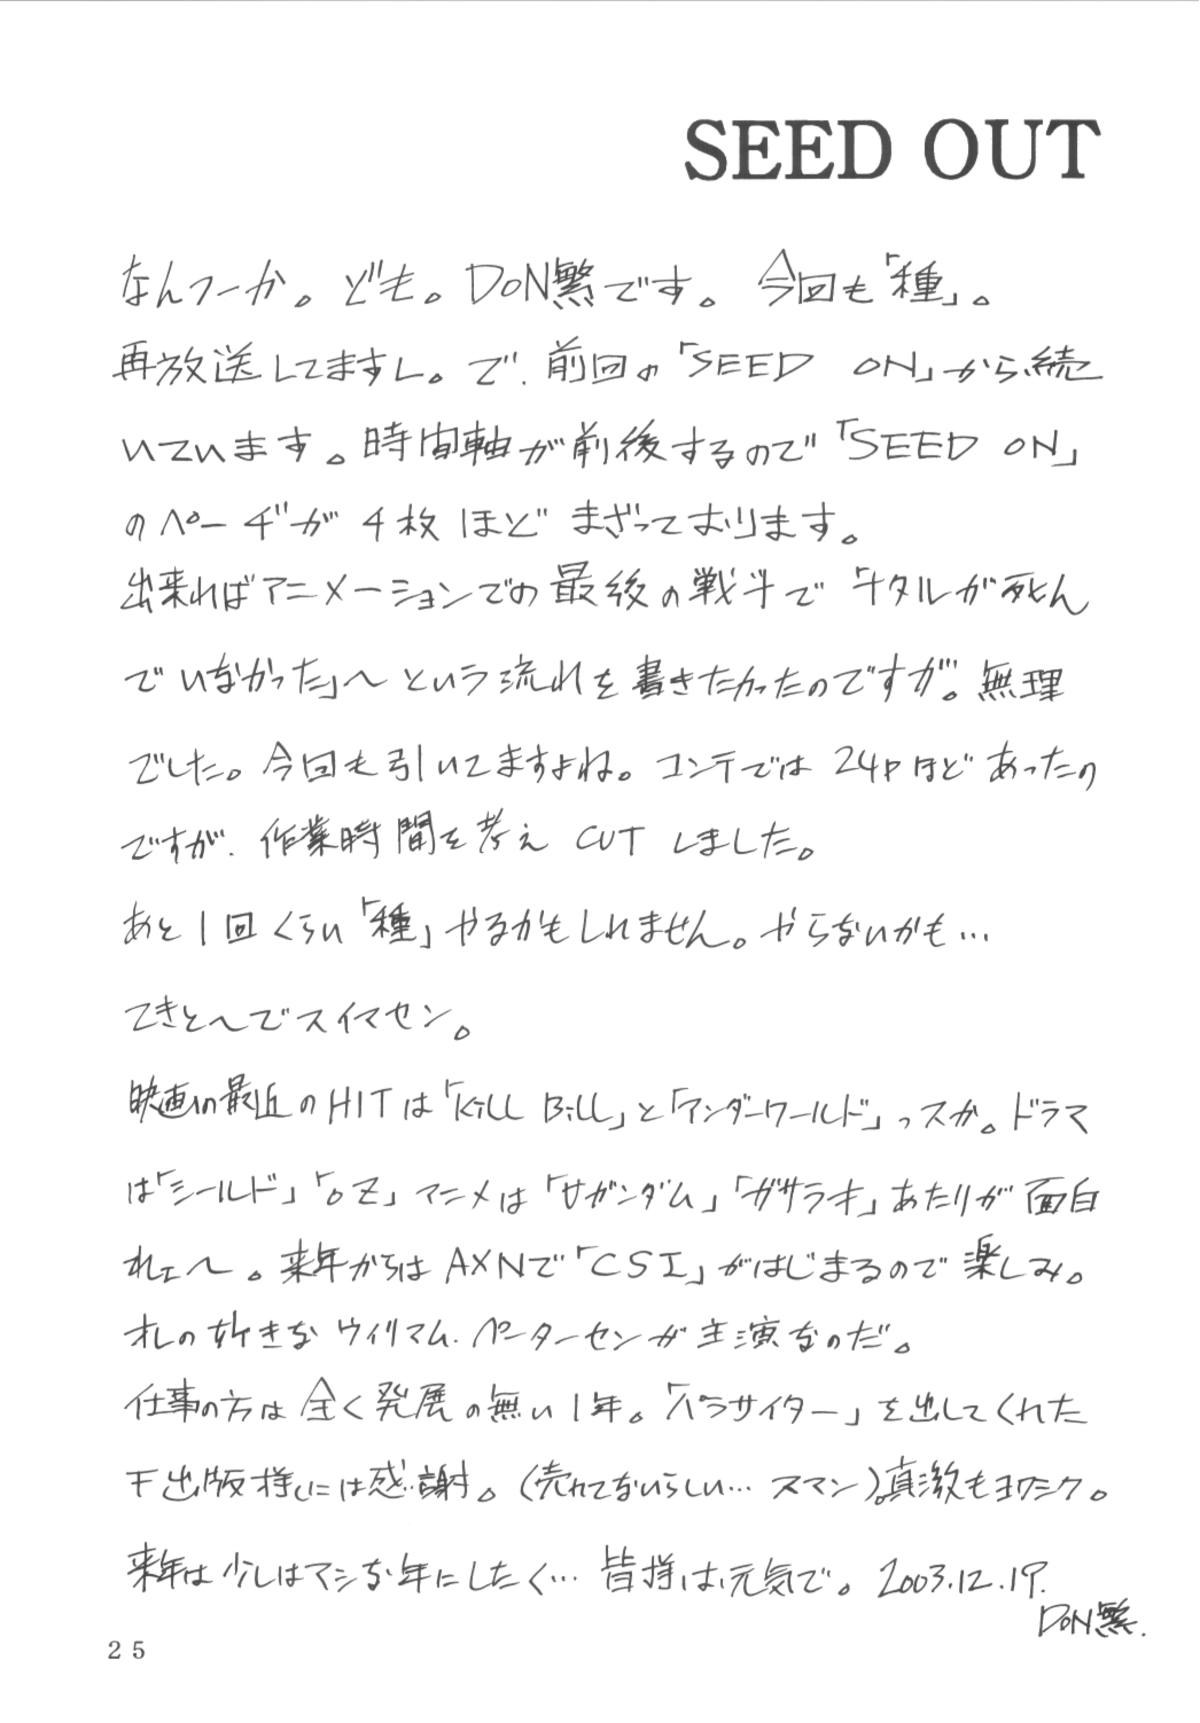 SEED OUT
なんつーか。ども。DON繁です。今回も「種」。
再放送してますし。で、前回の「SEED ON」から続
いています。時間軸が前後するので「SEED ON」
のページが4枚ほどまざっております。
出来ればアニメーションでの最後の戦斗で「キタルが死ん
でいなかった」〜という流れを書きたかったのですが。無理
でした。今回も引いてますよね。コンテでは24Pほどあったの
ですが、作業時間を考えCUTしました。
あと1回くらい「種」やるかもしれません。やらないかも…
てきと〜でスイマセン。
映画の最近のHITは「Kill Bill」と「アンダーワールド」っスか。ドラマ
は「シールド」「OZ」アニメは「∀ガンダム」「ガサラキ」あたりが面白
れェ〜。来年からはAXNで「CSI」がはじまるので楽しみ。
オレの好きなウイリアム.ペーターセンが主演なのだ。
仕事の方は全く発展の無い1年。「パラサイター」を出してくれた
出版様には感謝。(売れてないらしい…スマン)。真激もヨロシク。
来年は少しはマシな年にしたく…皆様は元気で。2003.12.19.
DON繁.
25